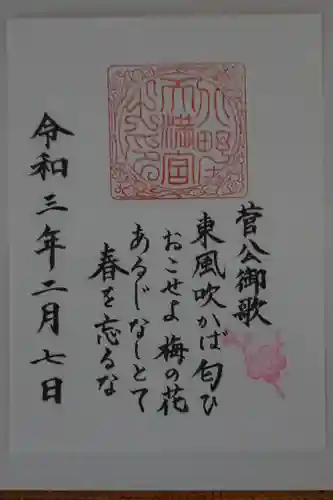 菅公御歌
東風吹かば匂ひ
おこせよ梅の花
あるじなしとて
春を忘るな
令和三年二月七日